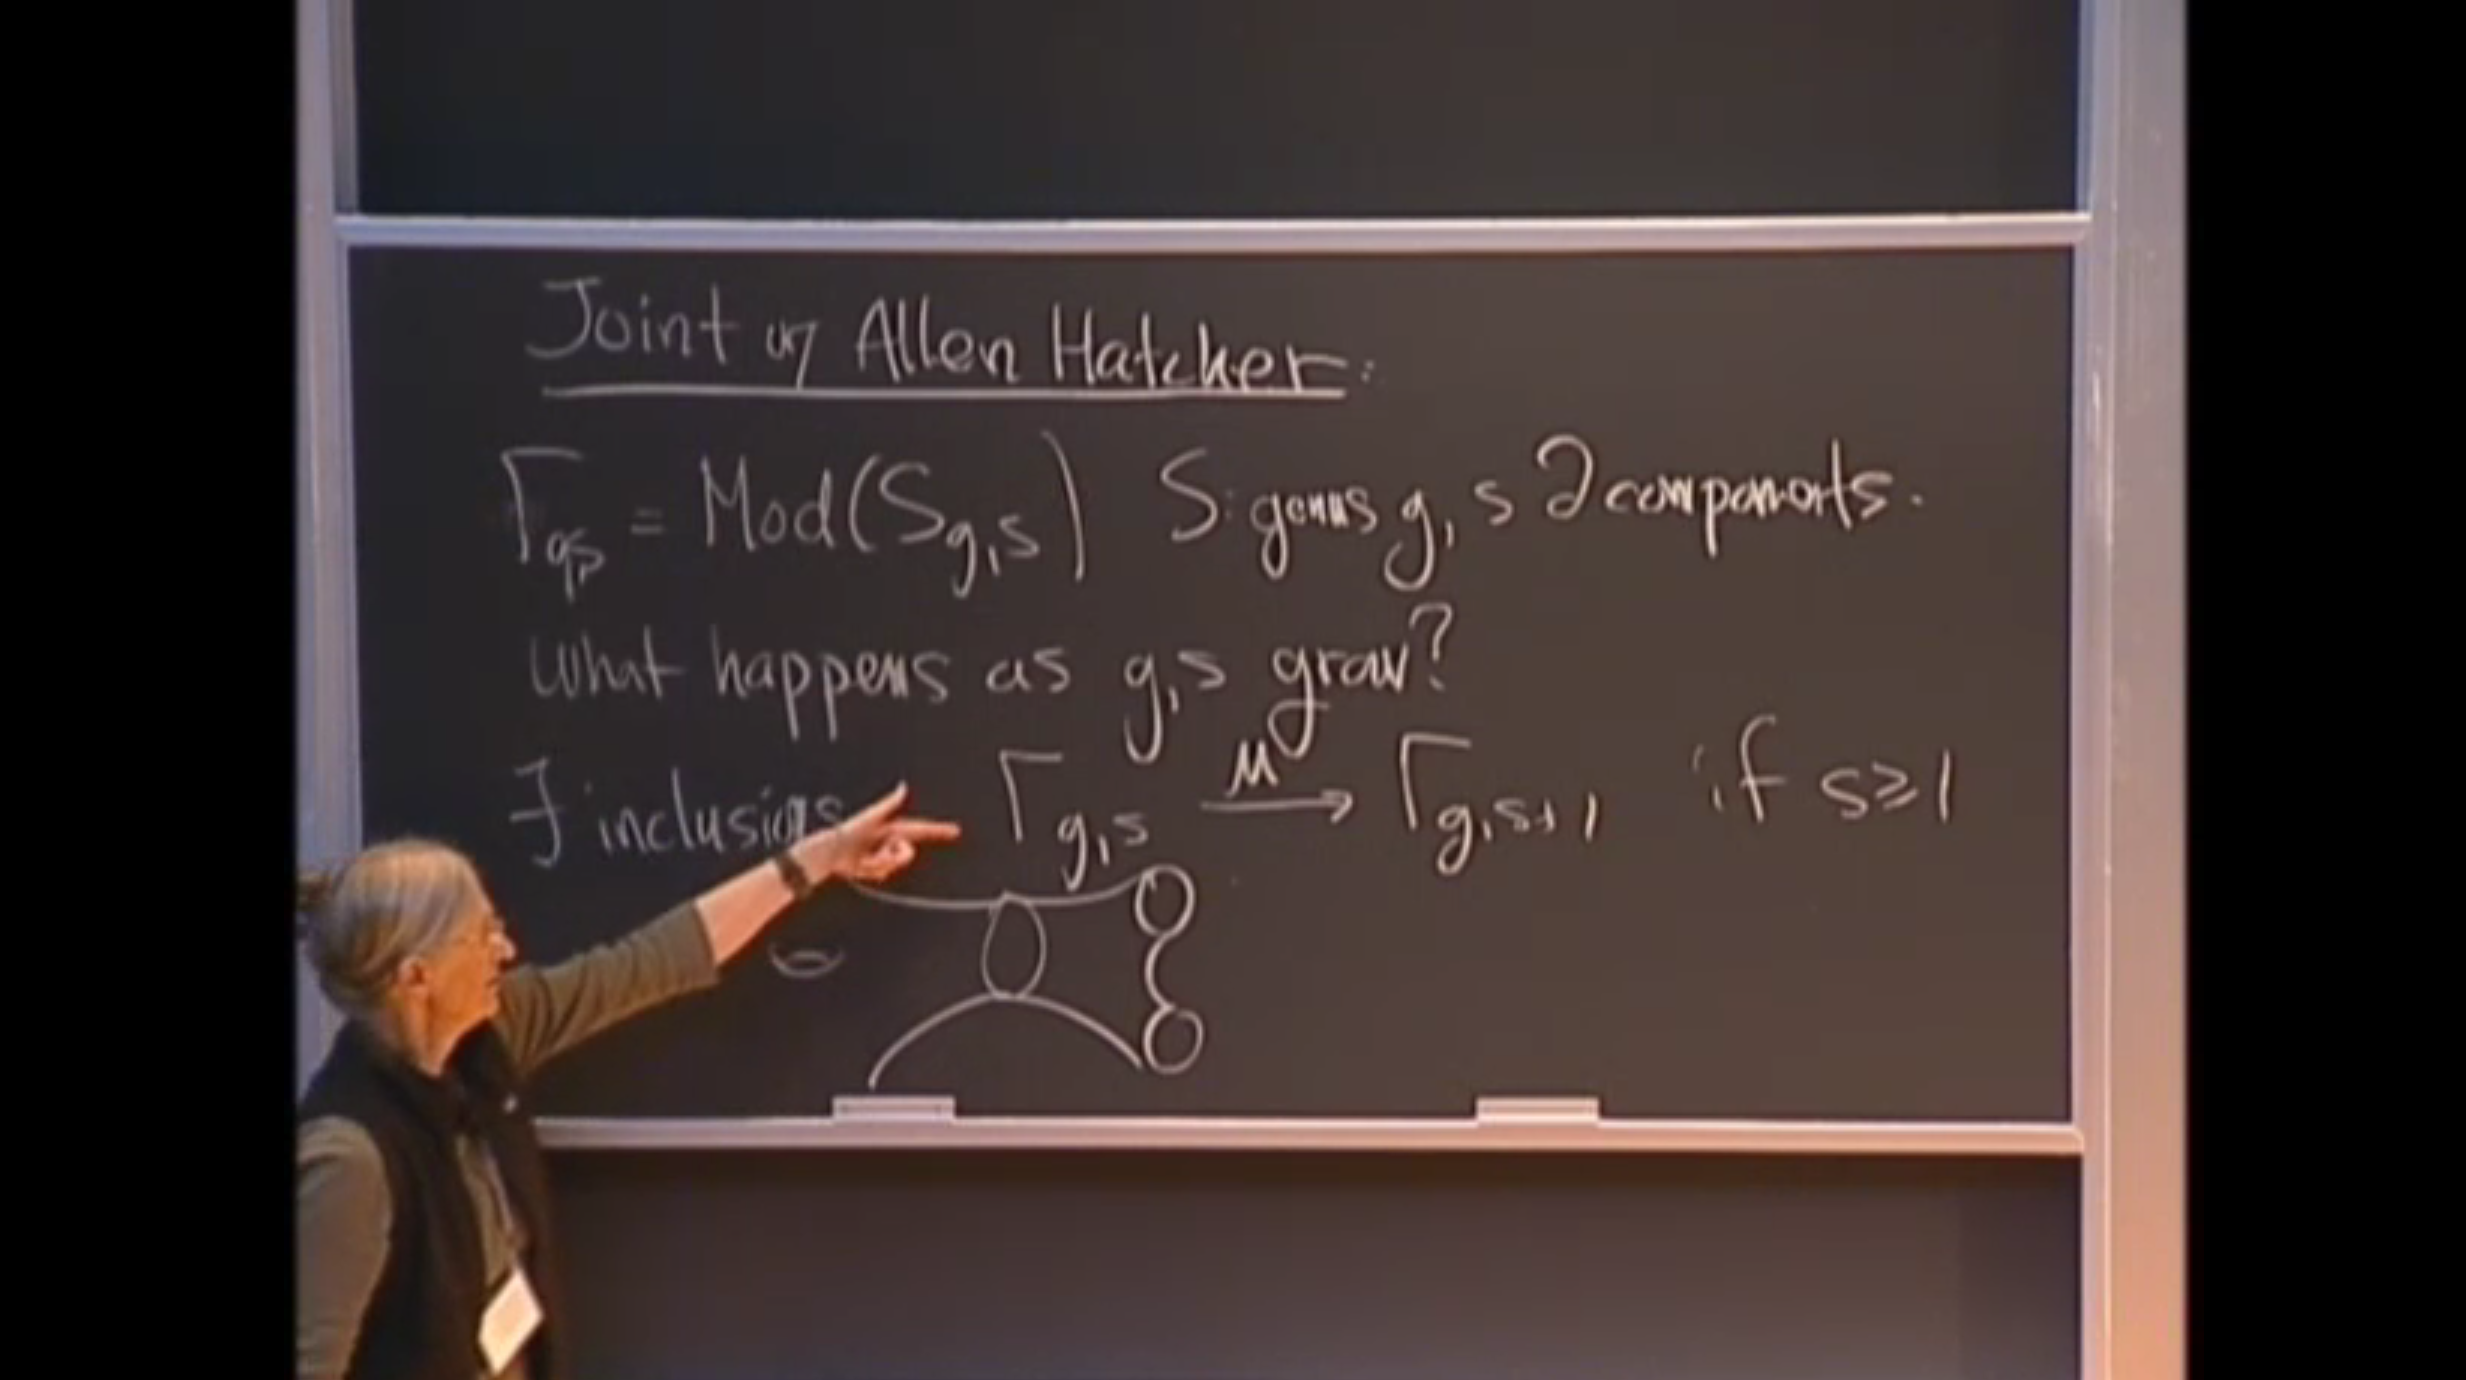 Joint w/ Allen Hatcher:
Γg,s = Mod(Sg,s) S: genus g, s ∂ components.
What happens as g,s grow?
∃ inclusions Γg,s —μ→ Γg,s+1 if s≥1